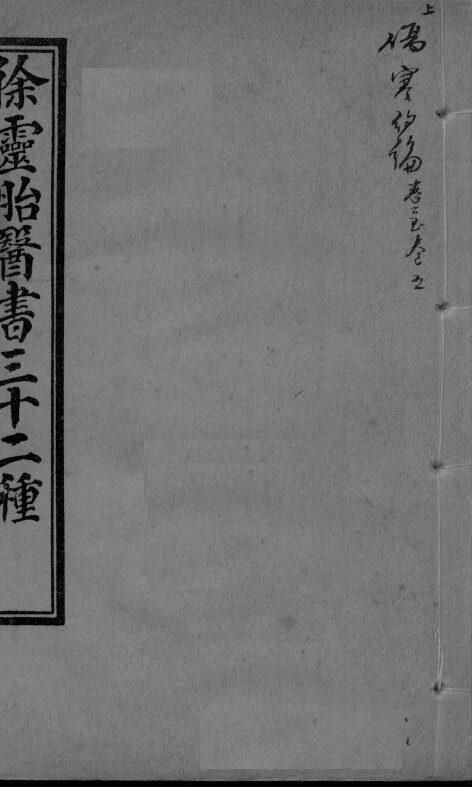 上
傷寒約編 卷三至卷五
徐靈胎醫書三十二種